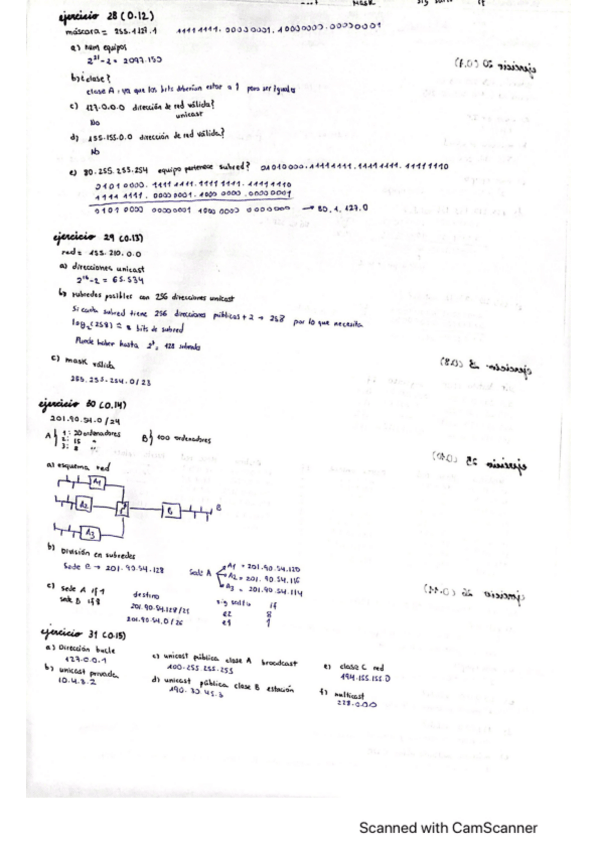 ejercicio 28 (0.12)
máscara = 255.1.128.1 11111111.00000001.10000000.00000001
a) num equipos
2²¹-2 = 2097.150
b) ¿clase?
clase A, ya que los bits deberían estar a 1 para ser iguales
c) 127.0.0.0 dirección de red válida?
unicast
No
d) 255.255.0.0 dirección de red válida?
No
e) 80.255.255.254 equipo pertenece subred? 01010000.11111111.11111111.11111110
01010000.11111111.11111111.11111110
11111111.00000001.10000000.00000001
01010000 00000001 10000000 00000000 → 80.1.128.0
ejercicio 29 (0.13)
red = 155.210.0.0
a) direcciones unicast
2¹⁶-2 = 65.534
b) subredes posibles con 256 direcciones unicast
Si cada subred tiene 256 direcciones públicas + 2 → 258 por lo que necesita
log₂(258) = bits de subred
Puede haber hasta 2⁷, 128 subredes
c) mask válida
255.255.254.0/23
ejercicio 30 (0.14)
201.90.54.0/24
A 1: 20 ordenadores B 100 ordenadores
2: 15 "
3: 8 "
a) esquema red
A1
A2 B B
A3
b) División en subredes
Sede B → 201.90.54.128 Sede A A1 = 201.90.54.
A2 = 201.90.54.
A3 = 201.90.54.
c) sede A if 1 destino sig salto if
sede B if 8 201.90.54.128/25 e2 8
201.90.54.0/26 e1 1
ejercicio 31 (0.15)
a) Dirección bucle c) unicast pública clase A broadcast e) clase C red
127.0.0.1 100.255.255.255 194.155.155.0
b) unicast privada d) unicast pública clase B estación f) multicast
10.4.3.2 190.30.45.3 228.0.0.0
Scanned with CamScanner